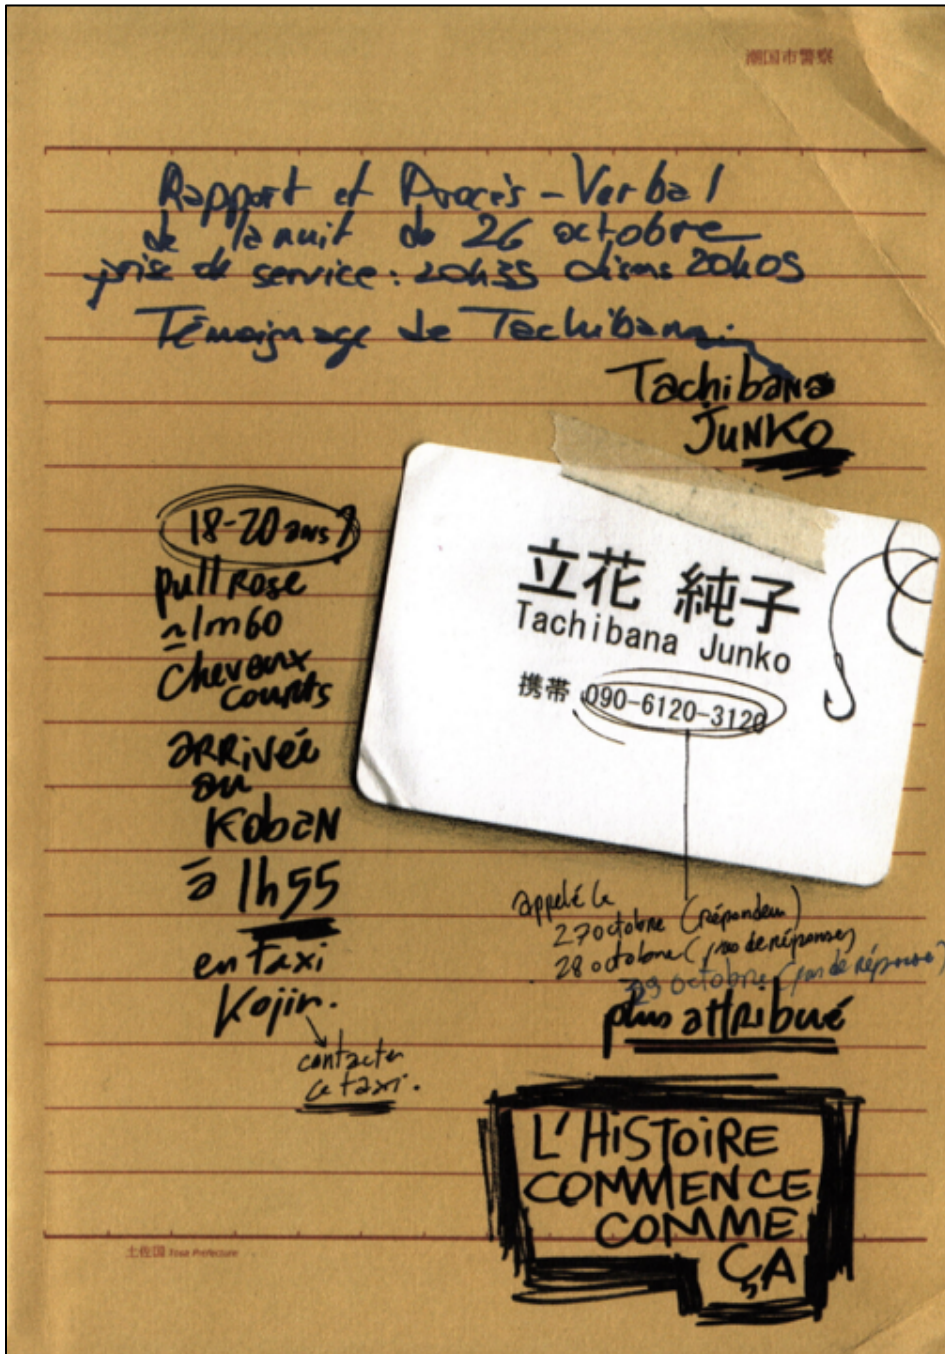 潮国市警察
Rapport et Procès-Verbal
de la nuit du 26 octobre
prise de service : 20h35 disons 20h05
Témoignage de Tachibana.
Tachibana
JUNKO
18-20 ans ?
pull Rose
~1m60
cheveux
courts
arrivée
au
Koban
à 1h55
en taxi
Kojin.
contacter
ce taxi.
立花 純子
Tachibana Junko
携帯 090-6120-3120
appelé le
27 octobre (répondeur)
28 octobre (pas de réponse)
29 octobre (pas de réponse)
plus attribué
L'HISTOIRE
COMMENCE
COMME
ÇA
土佐国 Tosa Prefecture